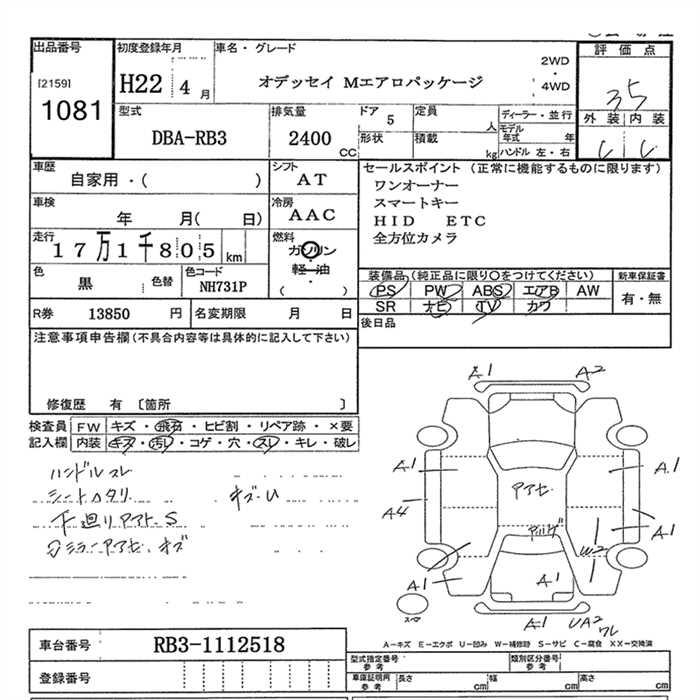 出品番号
[2159]
1081
初度登録年月
H22 4 月
車名・グレード
オデッセイ Mエアロパッケージ
2WD
・
4WD
評価点
3.5
外装 内装
C C
型式
DBA-RB3
排気量
2400 CC
ドア 5
形状
定員 人
積載 kg
ディーラー・並行
モデル年式 年
ハンドル 左・右
車歴
自家用・( )
シフト
AT
車検
年 月( 日)
冷房
AAC
走行
17万1千805 km
燃料
ガソリン
軽・油
・
( )
色
黒
色替
色コード
NH731P
R券 13850 円
名変期限 月 日
セールスポイント (正常に機能するものに限ります)
ワンオーナー
スマートキー
HID ETC
全方位カメラ
装備品(純正品に限り○をつけてください)
新車保証書
PS PW ABS エアB AW
SR ナビ TV カワ
有・無
後日品
注意事項申告欄(不具合内容等は具体的に記入して下さい)
修復歴 有 〔箇所 〕
検査員 FW キズ・飛石・ヒビ割・リペア跡・×要
記入欄 内装 キズ・汚レ・コゲ・穴・スレ・キレ・破レ
ハンドルスレ
シートヘタリ
キズ・U
下廻りアト、S
A1 A2
A1 A1
A4 A1
アアせ
W2
A1 A1
スペア
A1 UA2
ワレ
A−キズ E−エクボ U−凹み W−補修跡 S−サビ C−腐食 XX−交換済
車台番号 RB3-1112518
登録番号
型式指定番号 参考
類別区分番号 参考
車庫証明用 参考
長さ cm 幅 cm 高さ cm